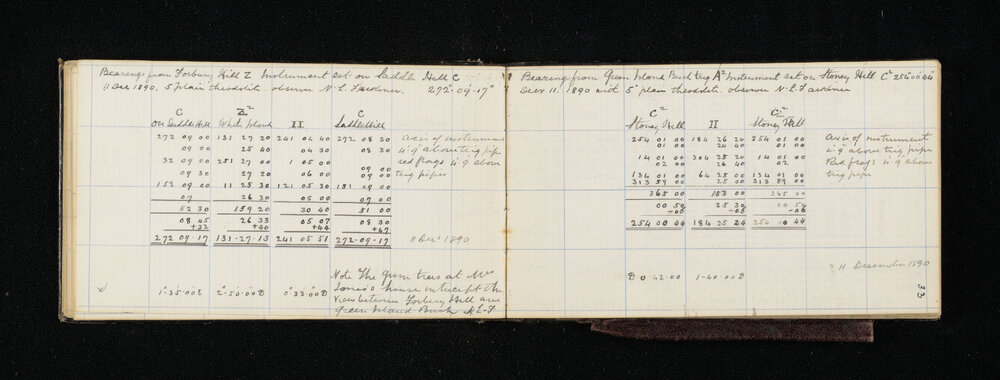 Bearings from Forbury Hill Z Instrument set on Saddle Hill C
11 Dec 1890. 5" plain theodolite observer N. L. Falkiner. 272°-09'-17"
C Z² II C
On Saddle Hill White Island Saddle Hill
272 09 00 131 27 20 241 04 40 272 08 30
09 00 25 40 04 30 08 30
32 09 00 251 27 00 1 05 00 09 00
09 30 27 20 06 00 09 00
152 09 00 11 25 30 121 05 30 151 09 00
07 26 30 05 00 07 00
52 30 159 20 30 40 51 00
08 45 26 33 05 07 08 30
+32 +40 +44 +47
272 09-17 131-27-13 241 05 51 272-09-17
Axis of instrument
is 9" above trig pipe
red flags is 9" above
trig pipes
11 Dec 1890
1°-35'-00" E 2°-50'-00" D 0°33'-00" D
Note The gum trees at Mr
house intercept the
view between Forbury Hill and
Green Island Bush N.L.F
Bearings from Green Island Bush trig A² Instrument set on Stoney Hill C² 254°00'44"
Decr 11. 1890 with 5" plain theodolite observer N. L. Falkiner
C² II C²
Stoney Hill Stoney Hill
254 01 00 184 26 20 254 01 00
01 00 24 40 01 00
14 01 00 304 25 20 14 01 00
02 00 26 40 02 00
134 01 00 64 25 00 134 01 00
313 59 00 25 00 313 59 00
365 00 153 00 365 00
00 50 25 30 00 50
-06 -06 -06
254 00 44 184 25 24 254 00 44
Axis of instrument
is 9" above trig pipe
Red flags is 9" above
trig pipe
11 December 1890
D 0 42.00 1-40.00 D
33